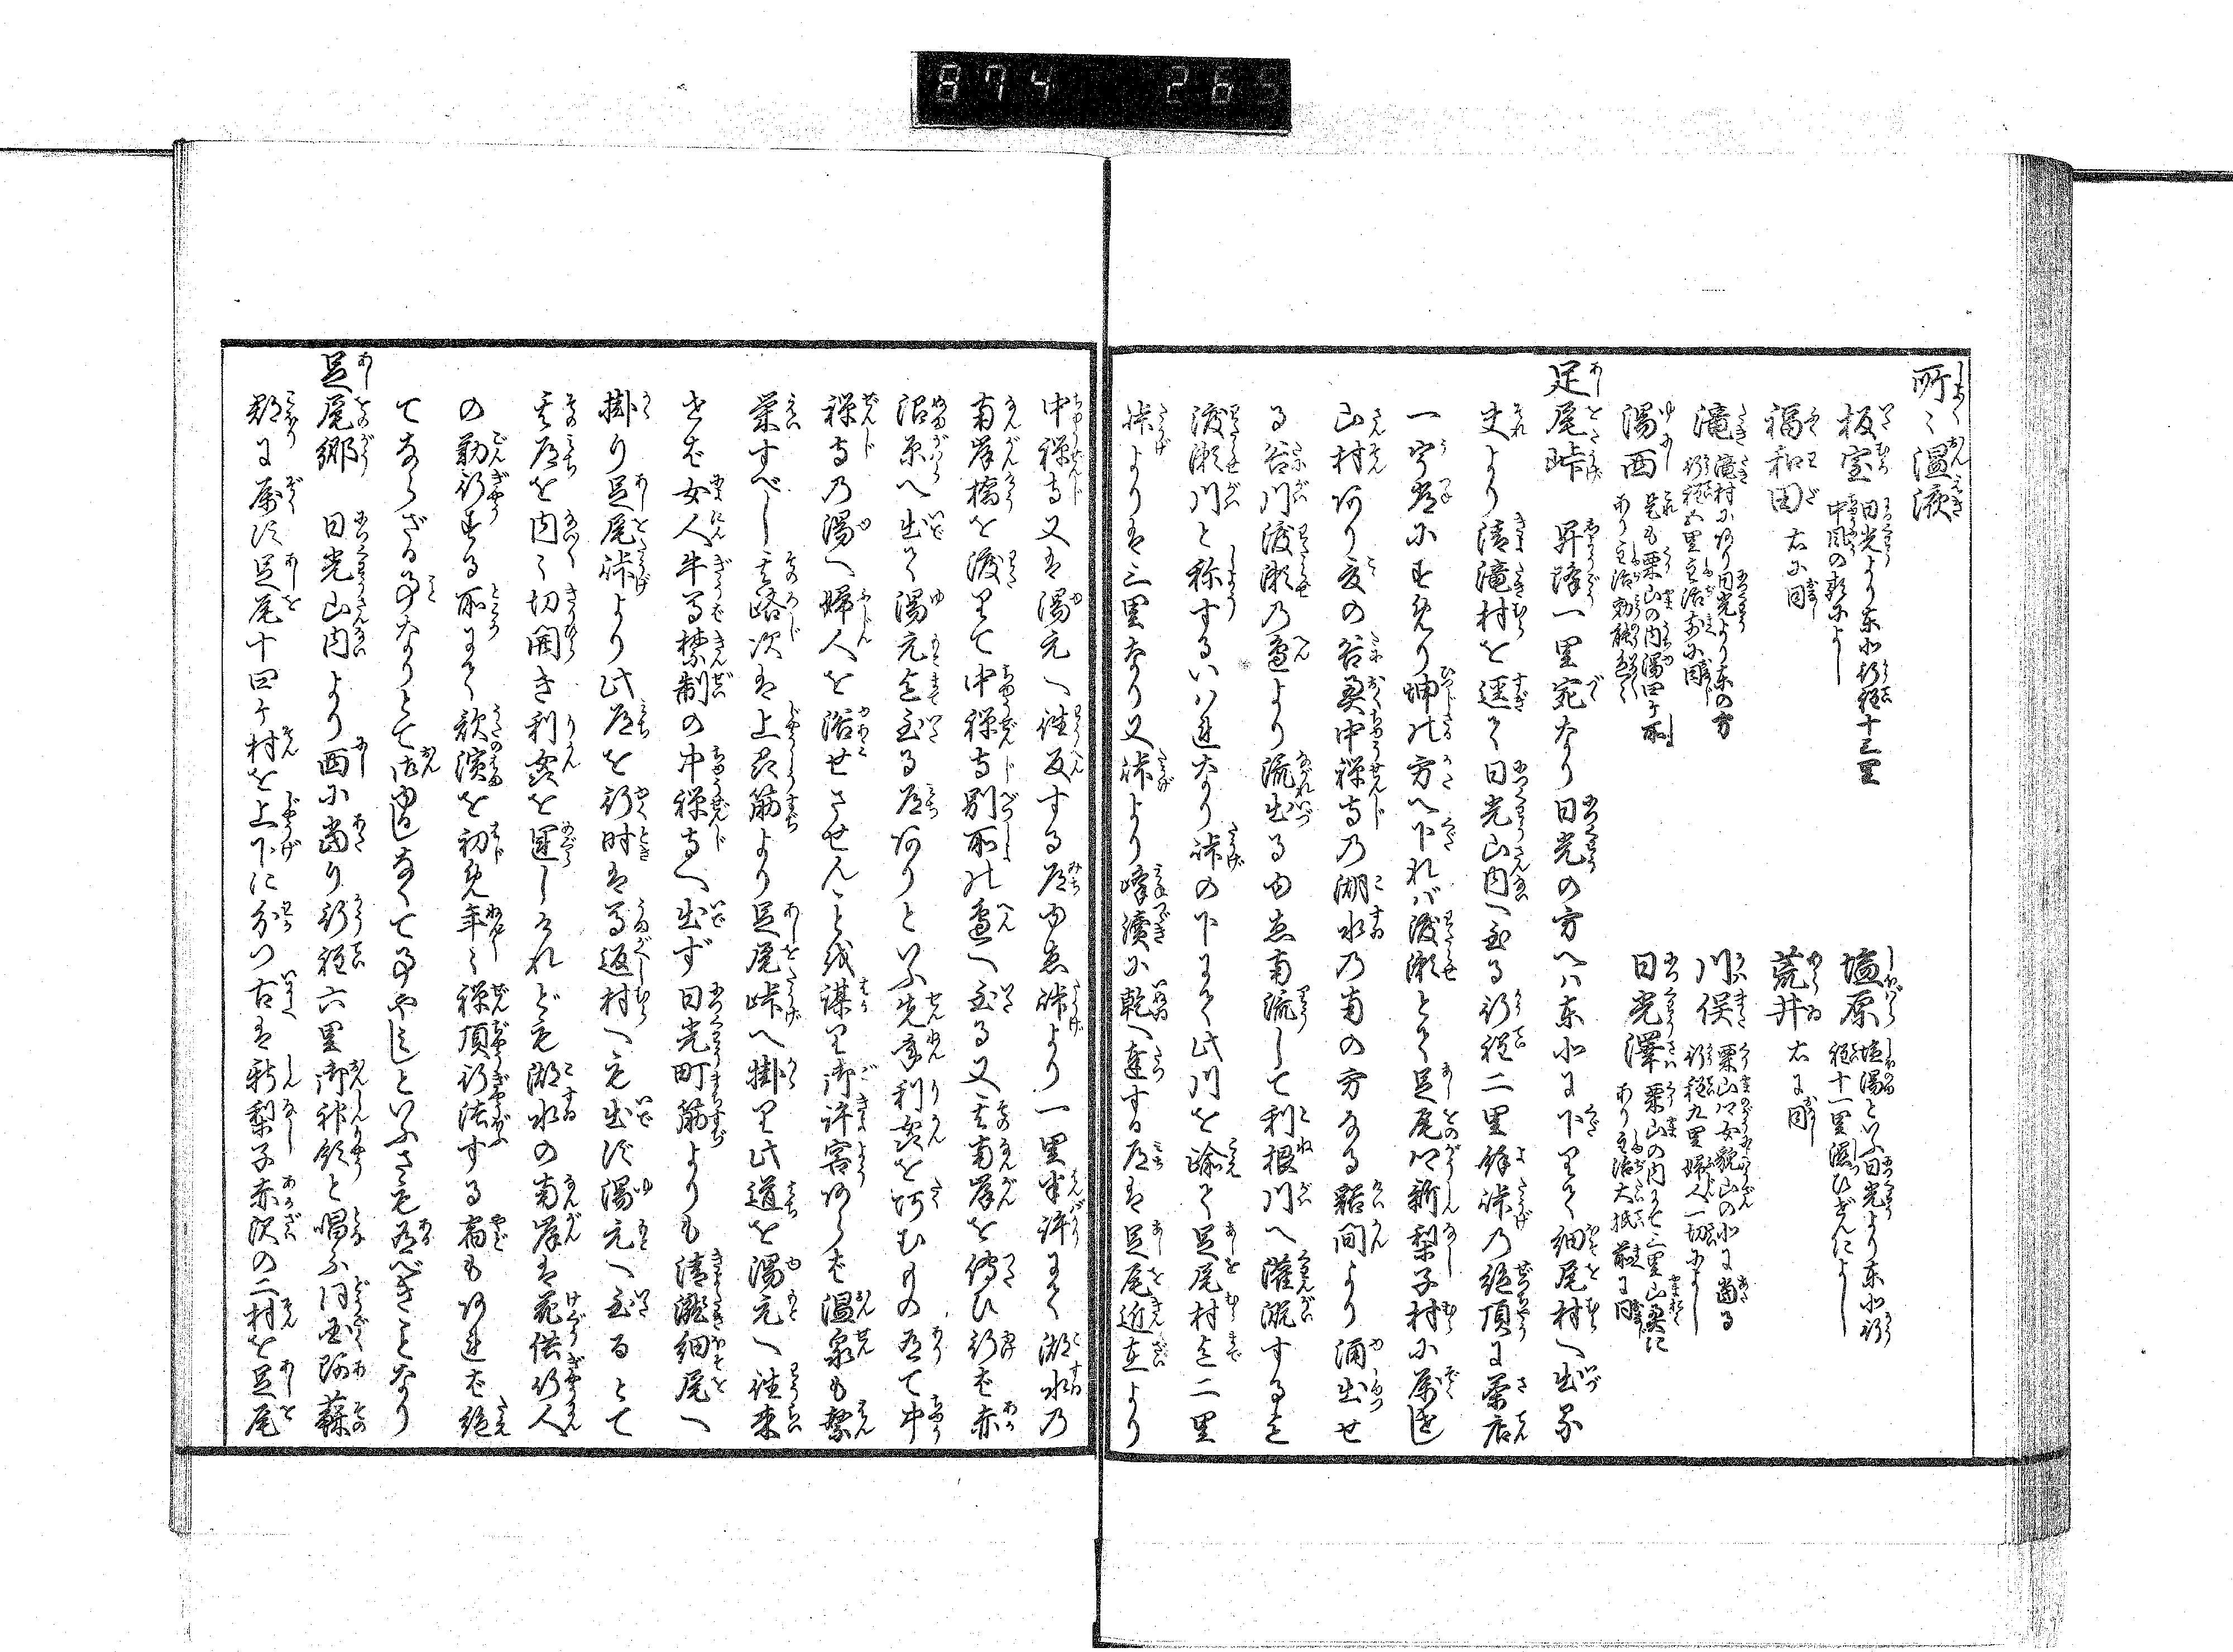 874 265
所々温液
板室 日光より東北行程十三里
中風の類によし
塩原 塩湯といふ日光より東北行
程十一里湿ひぜんによし
福和田 右に同
荒井 右に同
滝 滝村にあり日光より東の方
行程五里主治前に同
川俣 栗山郷女貌山の北に当る
行程九里婦人一切によし
湯西 是も栗山の内湯四ケ所
あり主治功
日光澤 栗山の内にて三里山奥に
あり主治大抵前に同
足尾峠 昇降一里宛なり日光の方へハ東北に下りて細尾村へ出づ
夫より清滝村を過て日光山内へ至る行程二里余峠乃絶頂に茶店
一宇常にあり坤の方へ下れバ渡瀬とて足尾郷新梨子村に属し
山村あり爰の谷奥中禅寺乃湖水乃南の方なる谿間より涌出せ
る谷川渡瀬乃辺より流出るゆゑ南流して利根川へ灌漑するを
渡瀬川と称するいハれなり峠の下にて此川を踰て足尾村迄二里
峠よりは三里なり又峠より峰續に乾へ達する道は足尾近在より
中禅寺又は湯元へ往返する道ゆゑ峠より一里半許にて湖水乃
南岸橋を渡りて中禅寺別所の辺へ至る又其南岸を傳ひ行ば赤
沼原へ出て湯元迄至る道ありといふ先年利益を好むもの有て中
禅寺乃湯へ婦人を浴せさせんことを謀り御許容あらば温泉も繁
栄すべし其路次は上州筋より足尾峠へ掛り此道を湯元へ往来
せば女人牛馬禁制の中禅寺へ出ず日光町筋よりも清滝細尾へ
掛り足尾峠より此道を行時は馬返村へも出ず湯元へ至るとて
其道を内々切開き利益を運しけれども湖水の南岸は花供行人
の勤行する所にて歌濱を初め年々禅頂行法する宿もあれば絶
てならざる事なりとて御用なくて事やみしといふさも有べきことなり
足尾郷 日光山内より西に當り行程六里御神領と唱ふ同国阿蘇
郡に属す足尾十四ケ村を上下に分つ古は新梨子赤沢の二村を足尾